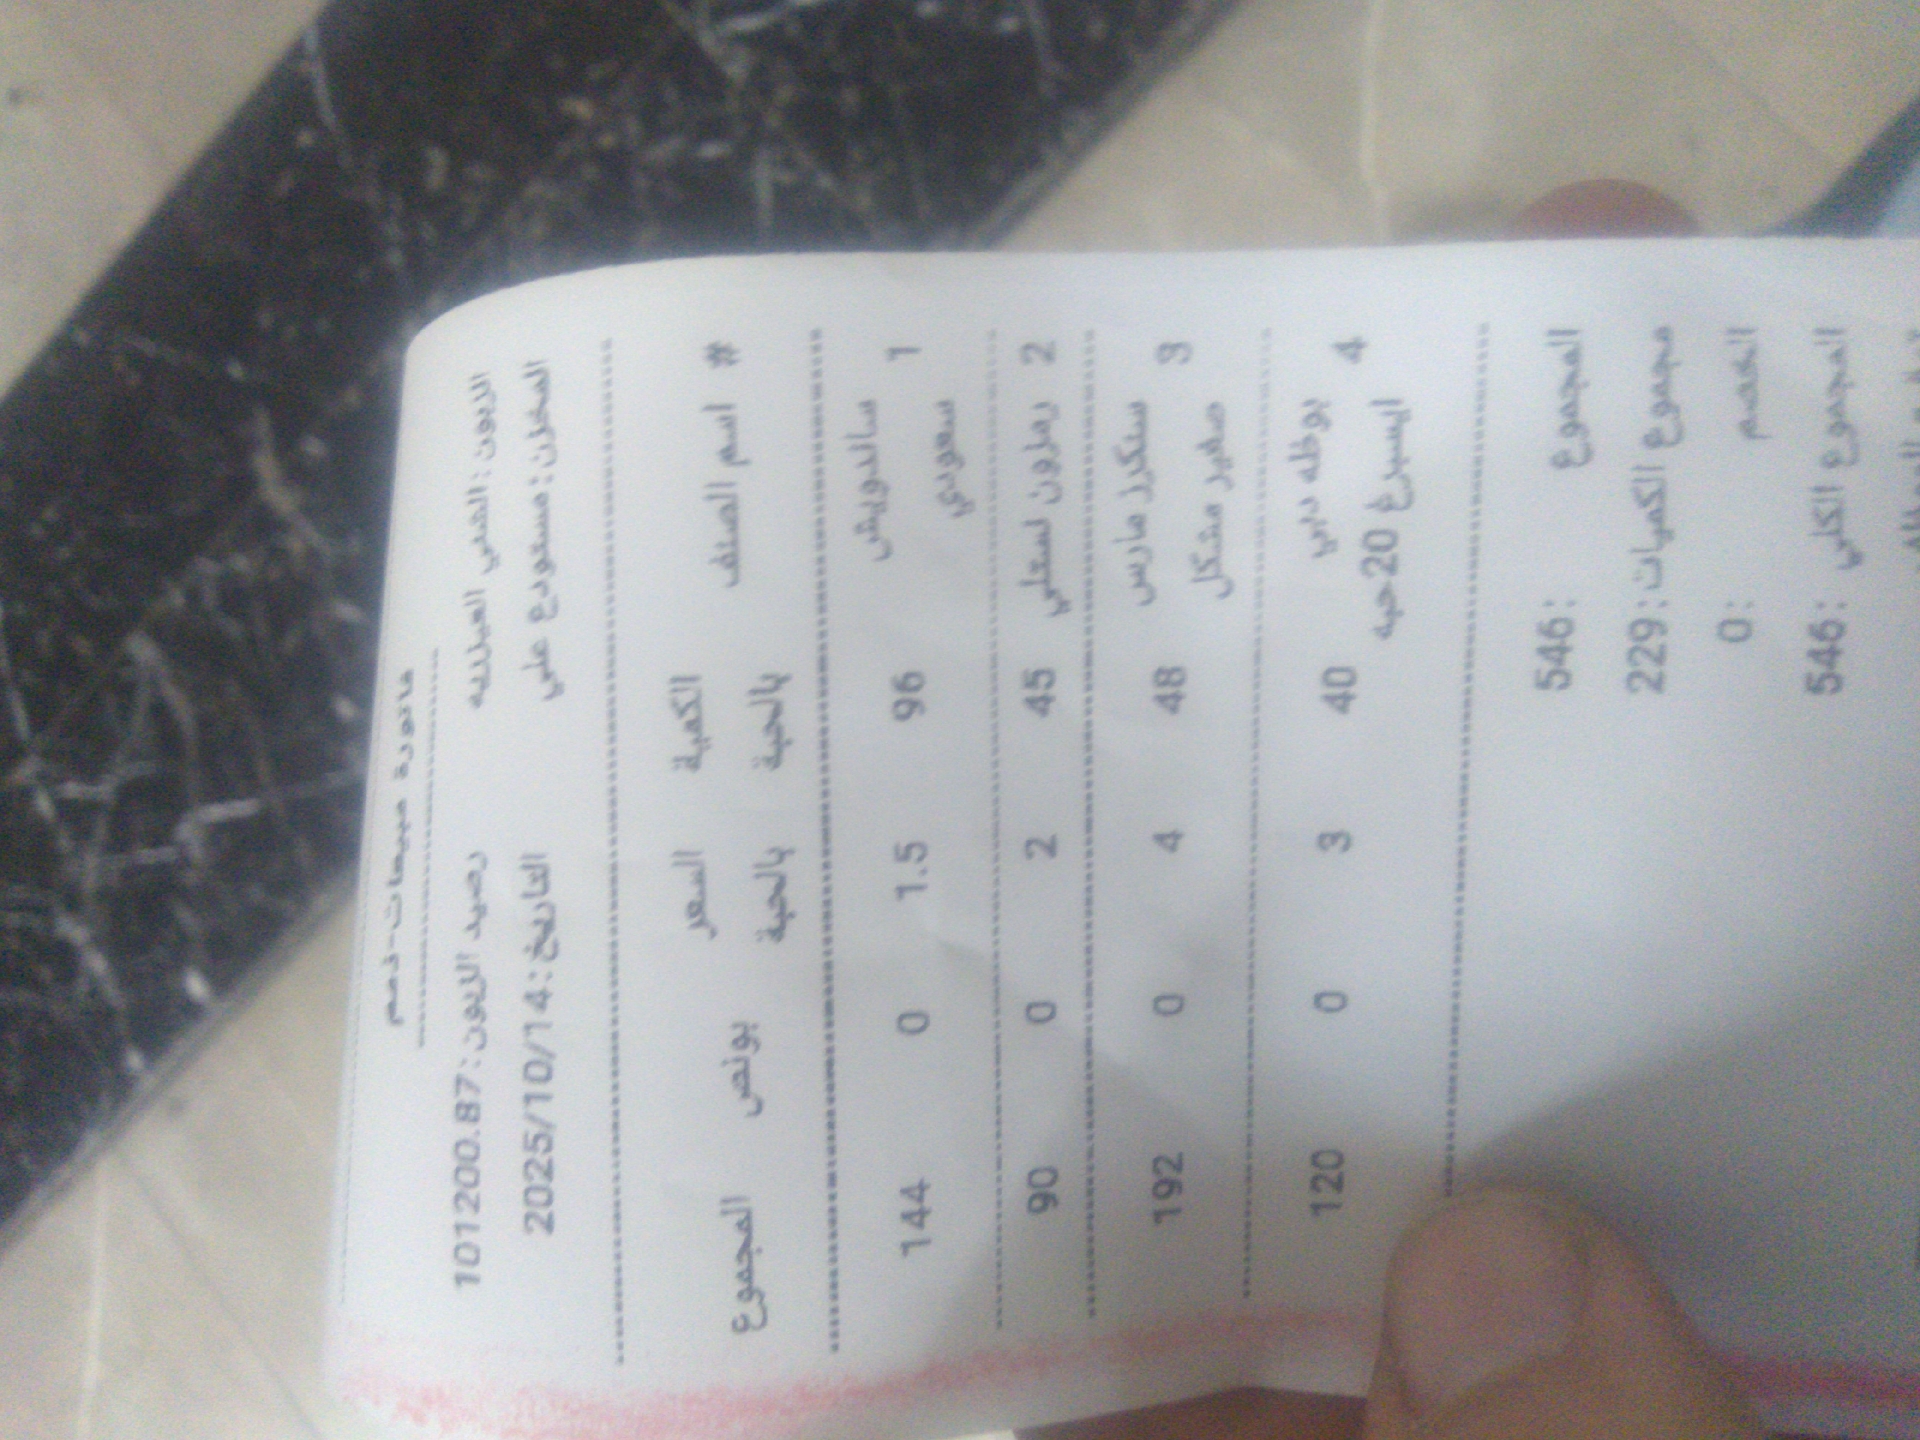 فاتورة مبيعات-ذمم
الزبون:القدس العيزريه رصيد الزبون:101200.87
المخزن:مستودع علي التاريخ:2025/10/14
# اسم الصنف الكمية بالحبة السعر بالحبة بونص المجموع
1 ساندويش سعودي 96 1.5 0 144
2 بمزون نستلي 45 2 0 90
3 سنكرز مارس صغير مشكل 48 4 0 192
4 بوظه دبي ايسبرغ 20حبه 40 3 0 120
المجموع :546
مجموع الكميات:229
الخصم :0
المجموع الكلي :546